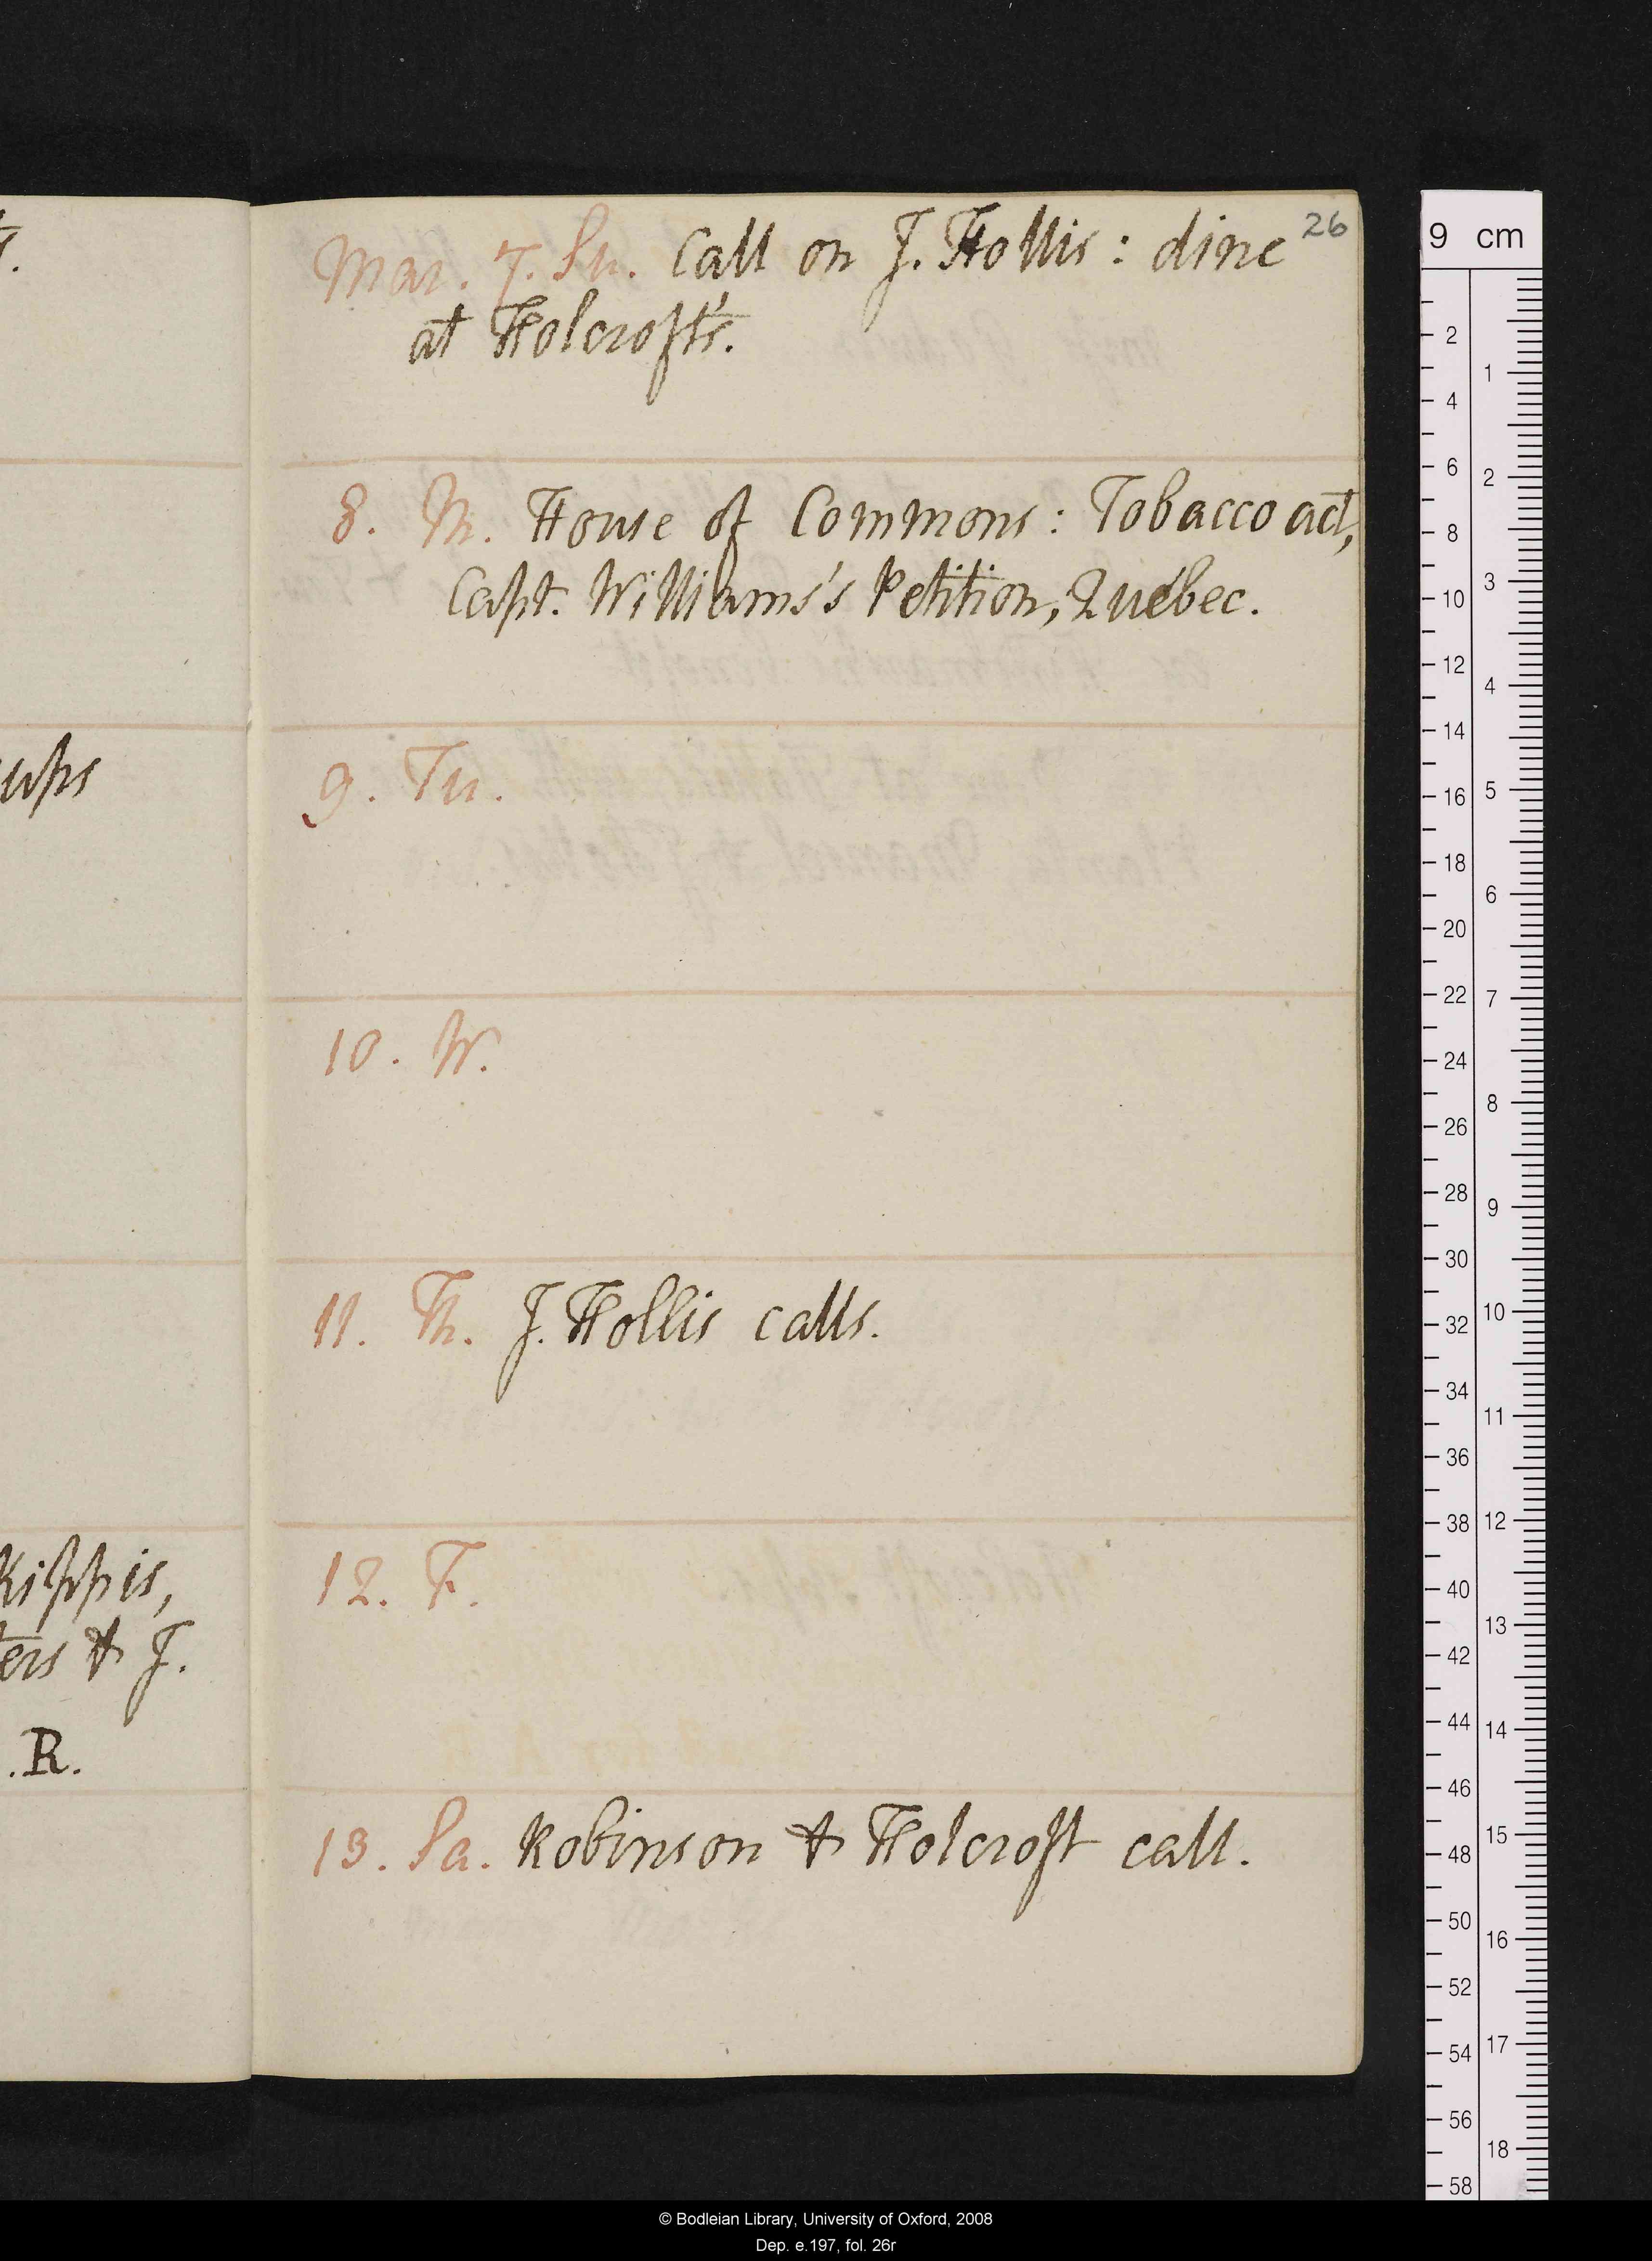 26
Mar. 7. Su. Call on J. Hollis: dine
at Holcroft's.
8. M. House of Commons: Tobacco act,
Capt. Williams's Petition, Québec.
9. Tu.
10. W.
11. Th. J. Hollis calls.
12. F.
13. Sa. Robinson & Holcroft call.
ups
Kippis,
ers & J.
. R.
9 cm
2
4
6
8
10
12
14
16
18
20
22
24
26
28
30
32
34
36
38
40
42
44
46
48
50
52
54
56
58
1
2
3
4
5
6
7
8
9
10
11
12
13
14
15
16
17
18
© Bodleian Library, University of Oxford, 2008
Dep. e.197, fol. 26r